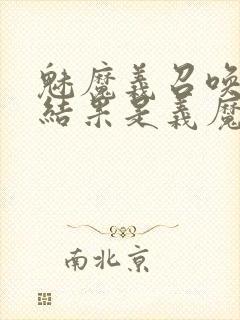 魅魔義召唤
結果是義魔
南北京